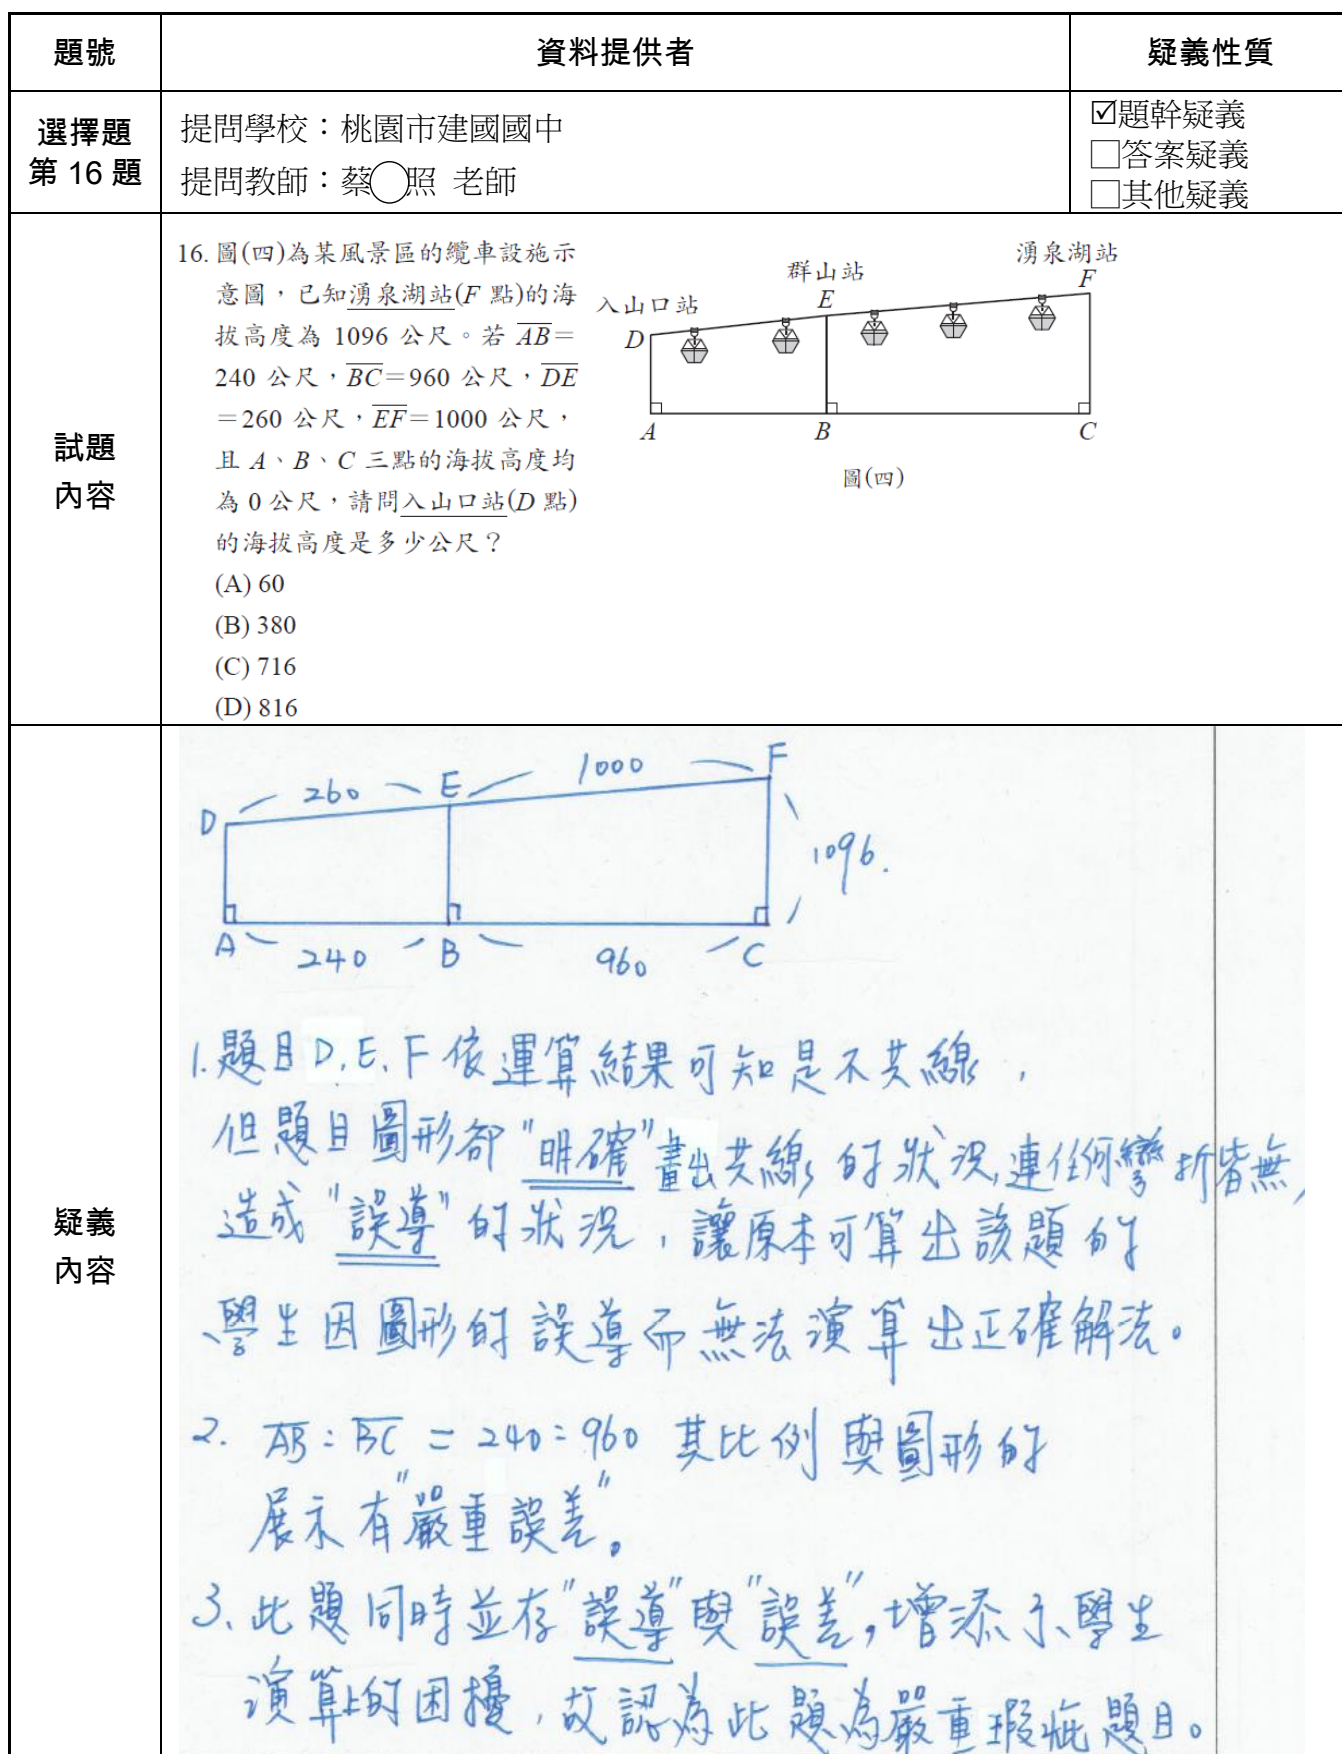 題號
資料提供者
疑義性質
選擇題
第 16 題
提問學校：桃園市建國國中
提問教師：蔡◯照 老師
☑題幹疑義
□答案疑義
□其他疑義
試題
內容
16. 圖(四)為某風景區的纜車設施示
意圖，已知湧泉湖站(F 點)的海
拔高度為 1096 公尺。若 AB＝
240 公尺，BC＝960 公尺，DE
＝260 公尺，EF＝1000 公尺，
且 A、B、C 三點的海拔高度均
為 0 公尺，請問入山口站(D 點)
的海拔高度是多少公尺？
(A) 60
(B) 380
(C) 716
(D) 816
入山口站
群山站
湧泉湖站
D
E
F
A
B
C
圖(四)
疑義
內容
D
260
E
1000
F
1096.
A
240
B
960
C
1.題目D.E.F依運算結果可知是不共線，
但題目圖形卻"明確"畫出共線的狀況,連任何彎折皆無,
造成"誤導"的狀況，讓原本可算出該題的
學生因圖形的誤導而無法演算出正確解法。
2. AB：BC＝240：960 其比例與圖形的
展示有"嚴重誤差"。
3、此題同時並存"誤導"與"誤差",增添了學生
演算上的困擾，故認為此題為嚴重瑕疵題目。